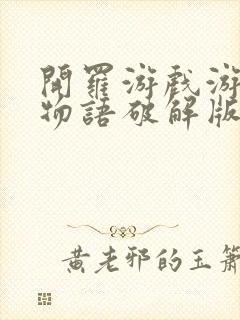 開羅游戲游
物語破解版
黃老邪的玉簫